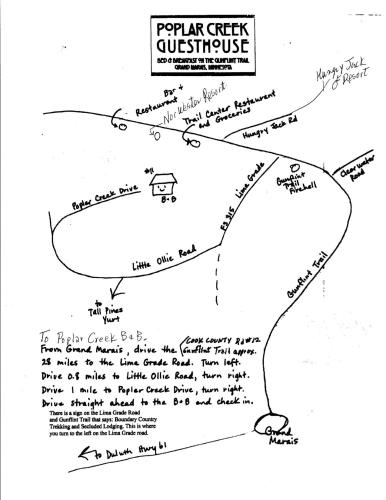 POPLAR CREEK
GUESTHOUSE
BED & BREAKFAST ON THE GUNFLINT TRAIL
GRAND MARAIS, MINNESOTA
Hungry Jack
Resort
Bar +
Restaurant
Nor'Wester Resort
Trail Center Restaurant
and Groceries
Hungry Jack Rd
Clearwater
Road
Gunflint
Trail
Firehall
Lima Grade
FS 315
#11
B+B
Poplar Creek Drive
Little Ollie Road
Gunflint Trail
to
Tall Pines
Yurt
To Poplar Creek B&B.
From Grand Marais, drive the (COOK COUNTY Rd #12
Gunflint Trail approx.
28 miles to the Lima Grade Road. Turn left.
Drive 0.8 miles to Little Ollie Road, turn right.
Drive 1 mile to Poplar Creek Drive, turn right.
Drive straight ahead to the B+B and check in.
There is a sign on the Lima Grade Road
and Gunflint Trail that says: Boundary Country
Trekking and Secluded Lodging. This is where
you turn to the left on the Lima Grade road.
Grand
Marais
to Duluth Hwy 61